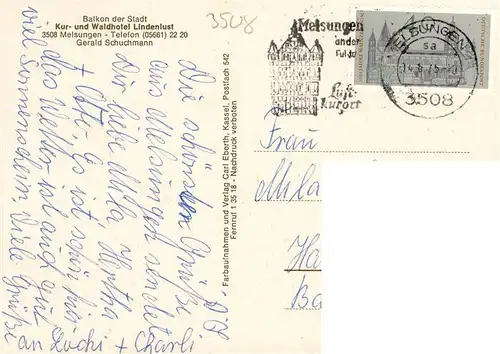 Balkon der Stadt
Kur- und Waldhotel Lindenlust
3508 Melsungen - Telefon (05661) 22 20
Gerald Schuchmann
3508
Melsungen
an der
Fulda
Luft-
kurort
MELSUNGEN
sa
14.8.75-10
3508
Farbaufnahmen und Verlag Carl Eberth, Kassel, Postfach 542
Fernruf 1 35 18 - Nachdruck verboten
Die schönsten Grüße
aus Melsungen sendet
Dir liebe Mila Hertha
+ Otto. Es ist schön hier
das Wetter ist auch gut
viel Sonnenschein Viele Grüße
an Luchi + Charli
Frau
Mila
Ha
Ba